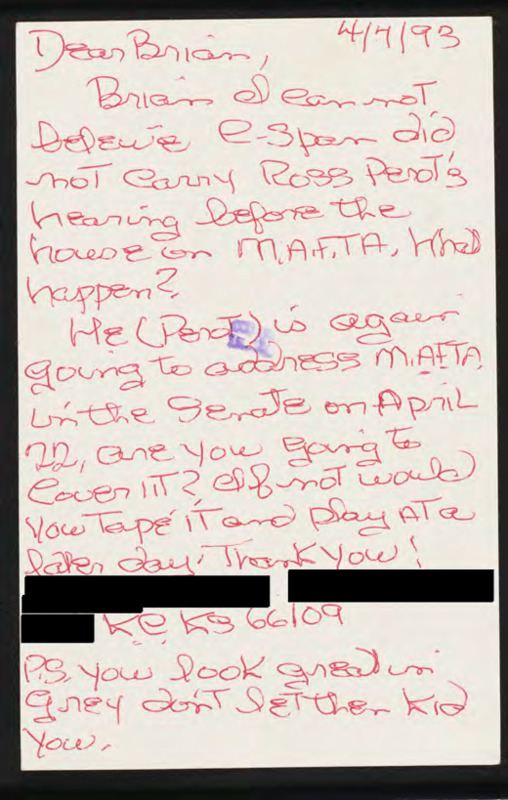 Dear Brian, 4/7/93
Brian I can not
beleive C-Span did
not carry Ross Perot's
hearing before the
house on N.A.F.T.A. What
happen?
He (Perot) is again
going to address N.AFTA
in the Senate on April
22, are you going to
cover IT? If not would
you Tape IT and play AT a
later day. Thank you!
KC KS 66109
P.S. you look great in
grey don't let them kid
you.